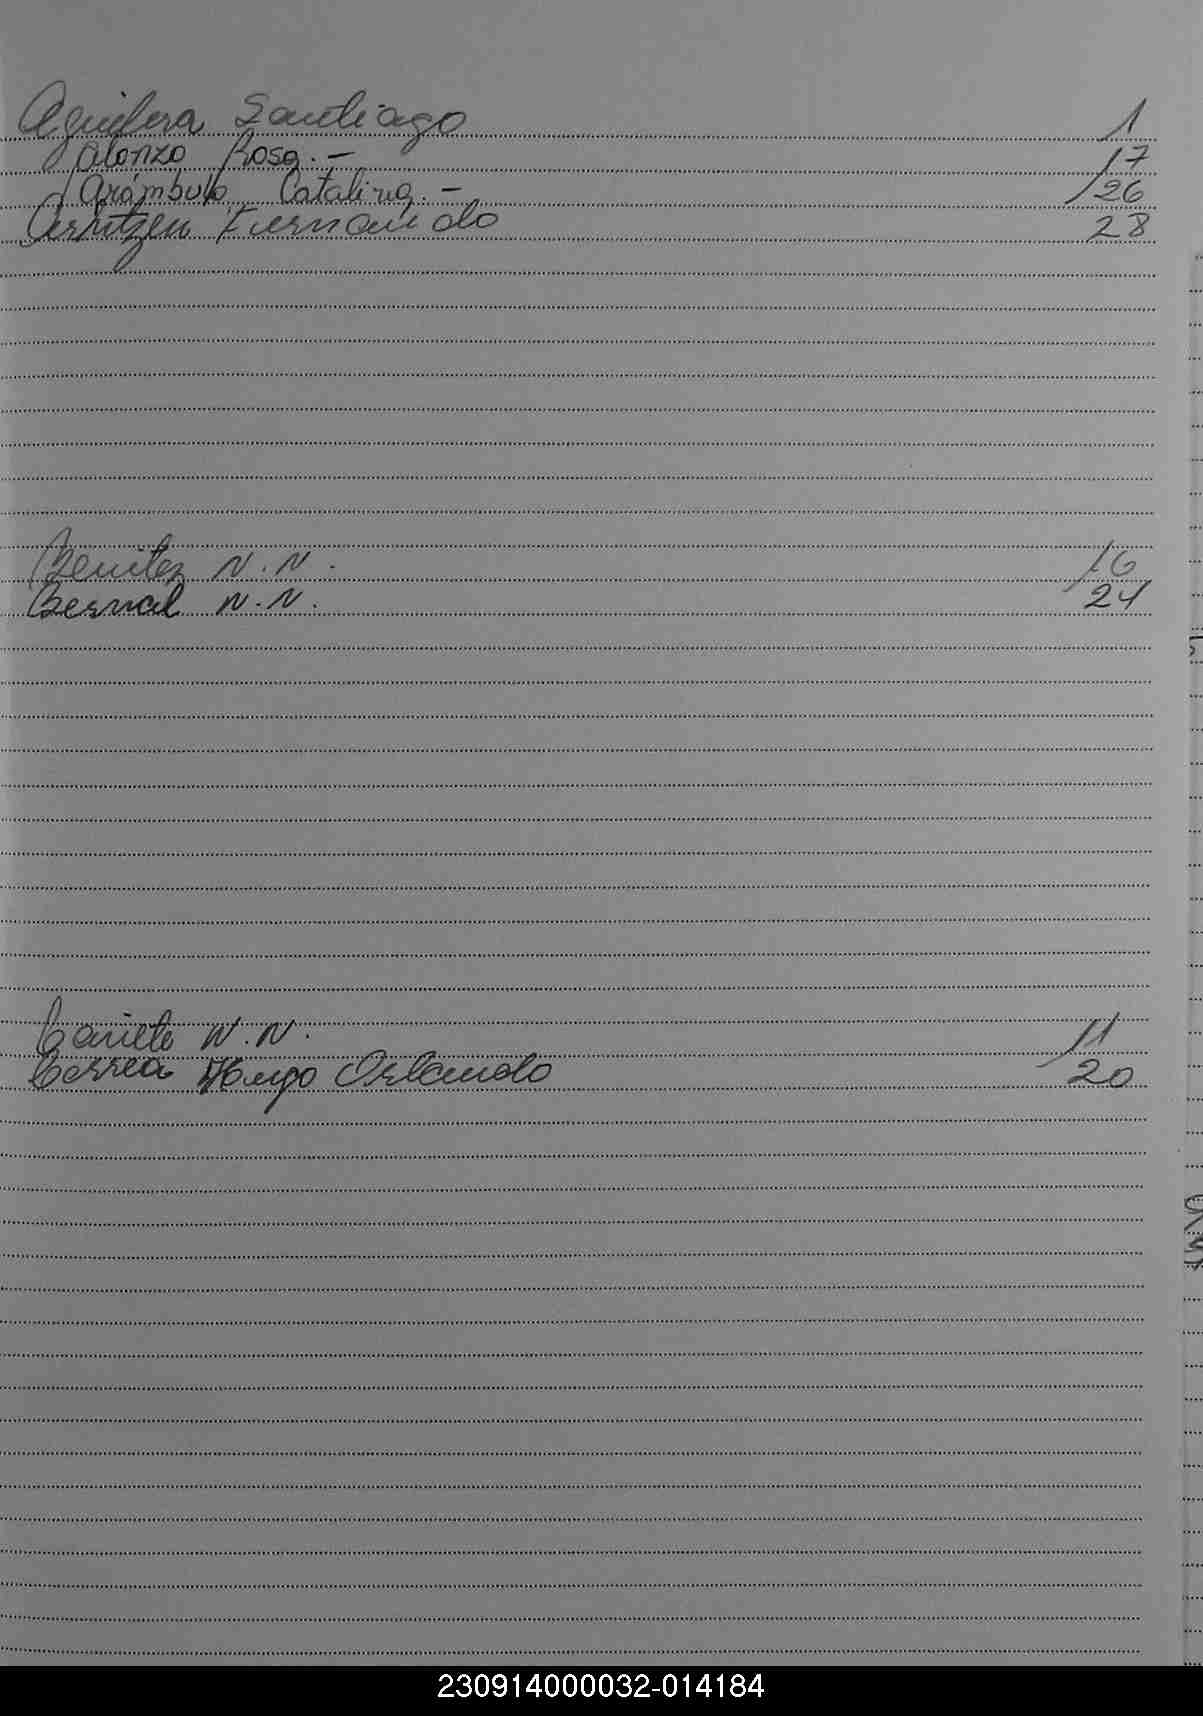 Aguilera Santiago 1
Alonzo Rosa.- 17
Arámbulo Catalina.- 26
Fernando 28
Benitez N.N. 16
Bernal N.N. 24
Cañete N.N. 11
Correa Hugo Orlando 20
230914000032-014184